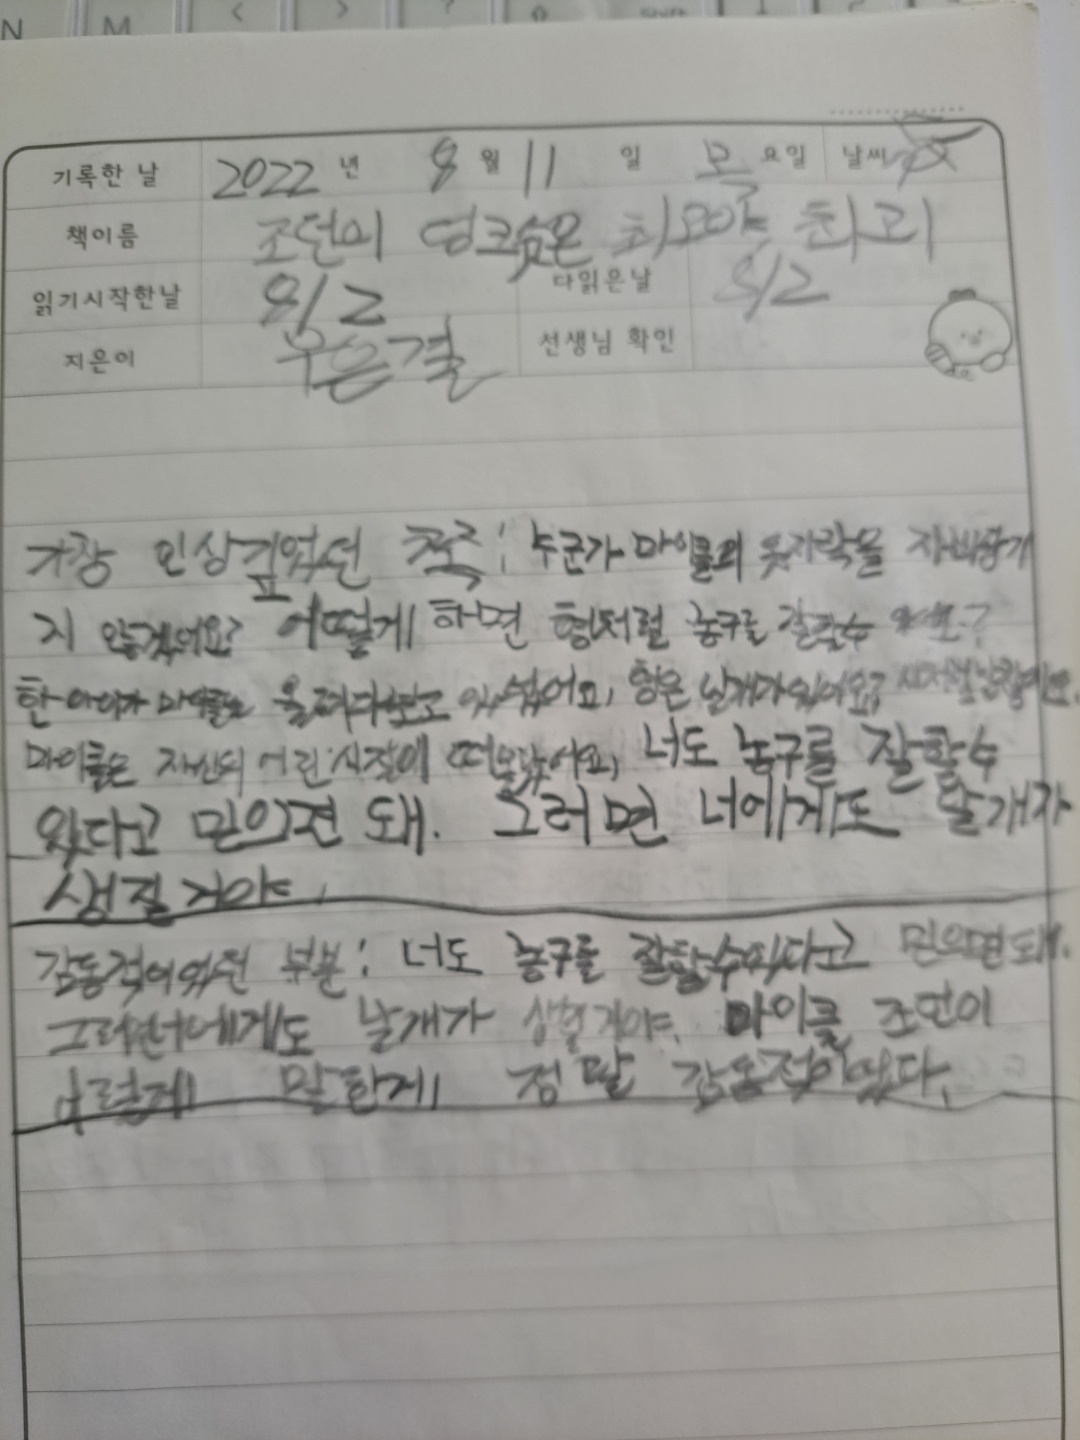 N M < > ? Shift
기록한 날 2022 년 8 월 11 일 목 요일 날씨
책이름 조던이 덩크슛은 최고야, 최고
읽기시작한날 8/2 다읽은날 8/2
지은이 우은결 선생님 확인
가장 인상깊었던 쪽: 누군가 마이클의 옷자락을
지 않겠어요? 어떻게 하면 형처럼 농구를 잘할수
한 아이가 올려다보고 형은 날개가 있어요?
마이클은 자신의 어린시절이 떠올랐어요, 너도 농구를 잘할수
있다고 믿으면 돼. 그러면 너에게도 날개가
생길거야.
감동적이었던 부분: 너도 농구를 잘할수있다고 믿으면돼.
날개가 생길거야. 마이클 조던이
말한게 정말 감동적이었다.